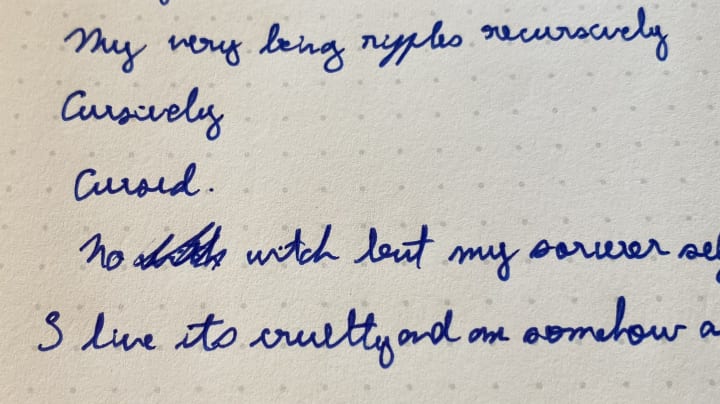 My very being ripples recursively
Cursively
Cursed.
No witch but my sorcerer sel
I live its cruelty and am somehow a